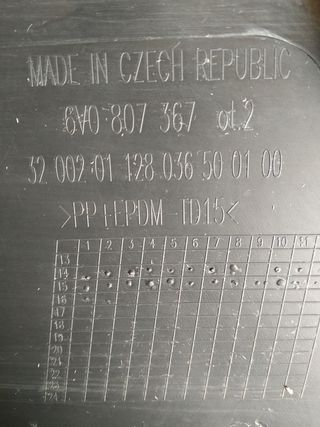 MADE IN CZECH REPUBLIC
6V0 807 367 ot.2
32 002 01 128 036 50 01 00
>PP+EPDM-TD15<
1 2 3 4 5 6 7 8 9 10 11
13
14
15
16
17
18
19
20
21
22
23
24